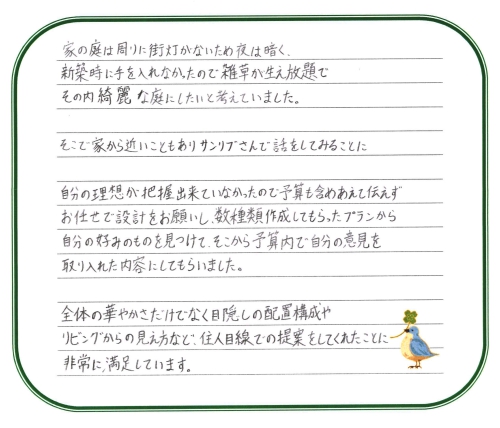 家の庭は周りに街灯がないため夜は暗く、
新築時に手を入れなかったので雑草が生え放題で
その内綺麗な庭にしたいと考えていました。
そこで家から近いこともありサンリブさんで話をしてみることに
自分の理想が把握出来ていなかったので予算も含めあえて伝えず
お任せで設計をお願いし、数種類作成してもらったプランから
自分の好みのものを見つけて、そこから予算内で自分の意見を
取り入れた内容にしてもらいました。
全体の華やかさだけでなく目隠しの配置構成や
リビングからの見え方など、住人目線での提案をしてくれたことに
非常に満足しています。